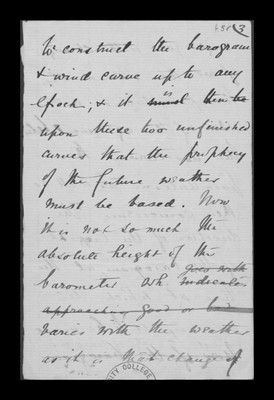 3
to construct the barogram
& wind curve up to any
epoch; & it is must then be
upon these two unfinished
curves that the prophecy
of the future weather
must be based. Now
it is not so much the
absolute height of the
goes with
barometer wh indicates
approaching good or bad
varies with the weather
as it is that change of
COLLEGE